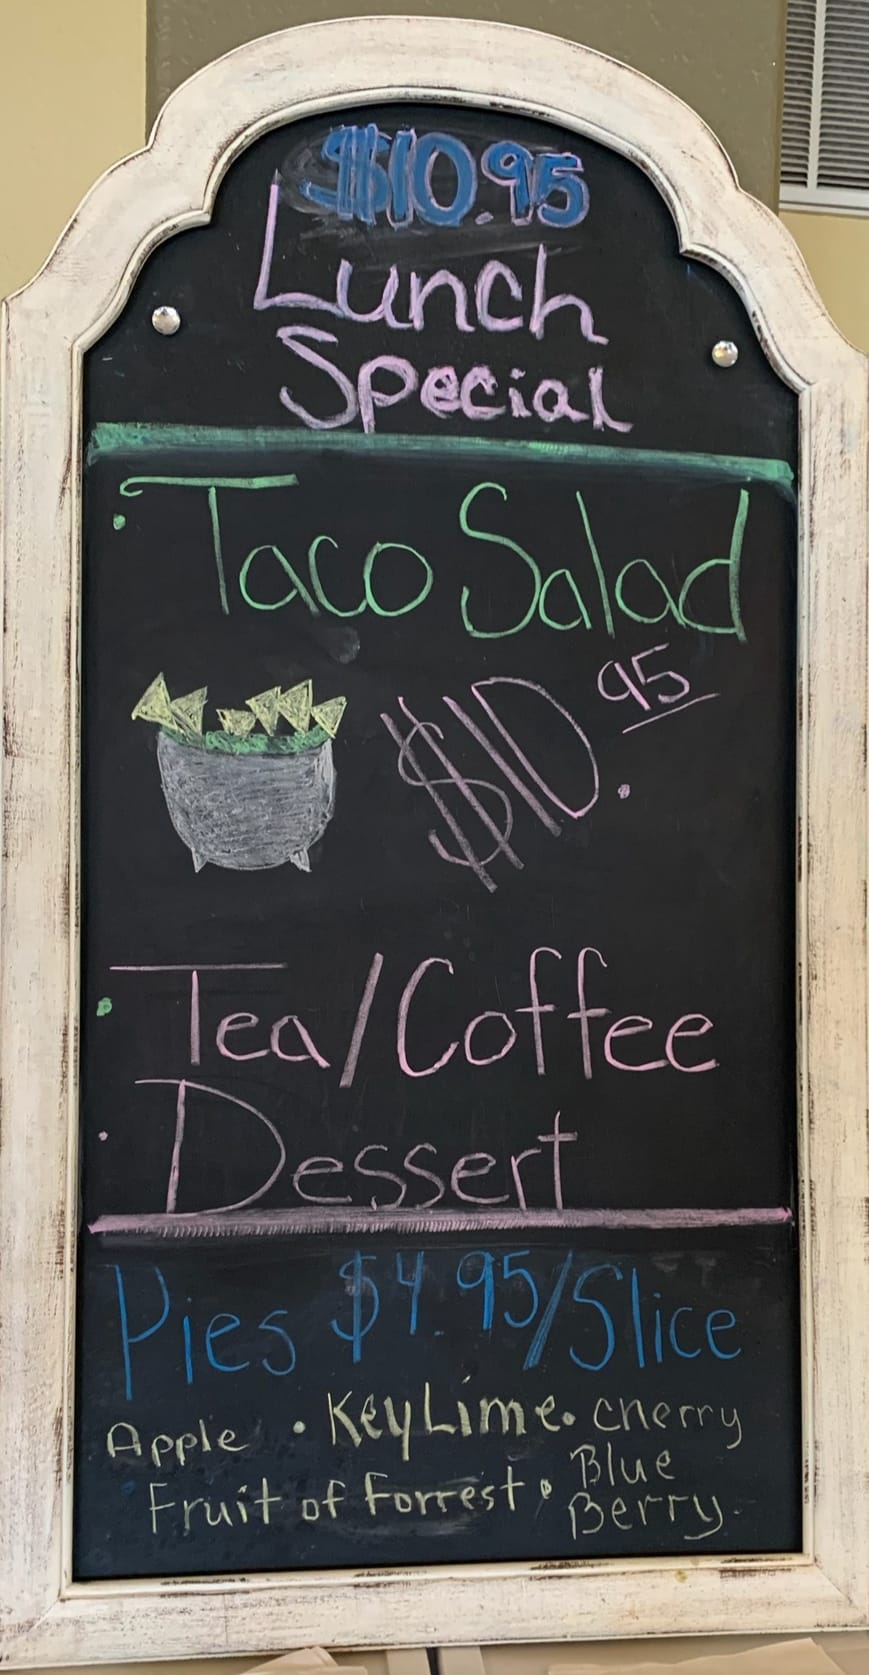 $10.95
Lunch
Special
• Taco Salad
$10.95
• Tea/Coffee
• Dessert
Pies $4.95/Slice
Apple • Key Lime • Cherry
Fruit of Forrest • Blue
Berry